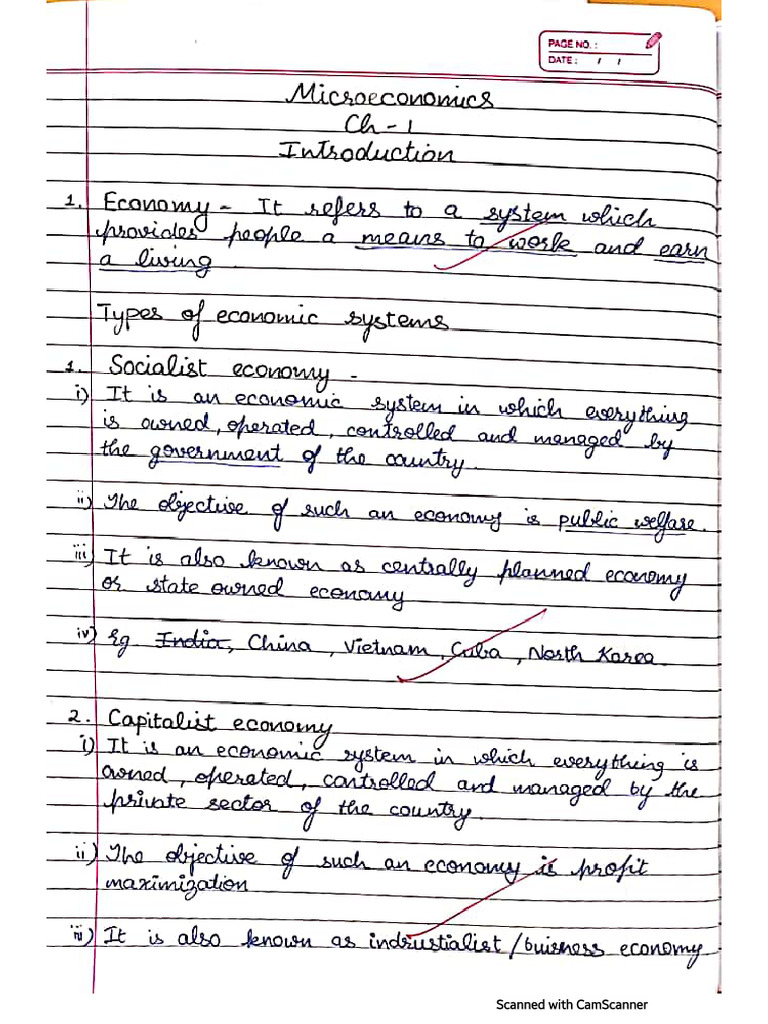 PAGE NO. :
DATE : / /
Microeconomics
Ch - 1
Introduction
1. Economy - It refers to a system which
provides people a means to work and earn
a living
Types of economic systems
1. Socialist economy -
i) It is an economic system in which everything
is owned, operated, controlled and managed by
the government of the country.
ii) The objective of such an economy is public welfare.
iii) It is also known as centrally planned economy
or state owned economy
iv) Eg. India, China, Vietnam, Cuba, North Korea.
2. Capitalist economy
i) It is an economic system in which everything is
owned, operated, controlled and managed by the
private sector of the country.
ii) The objective of such an economy is profit
maximization
iii) It is also known as indrustialist / buisness economy
Scanned with CamScanner